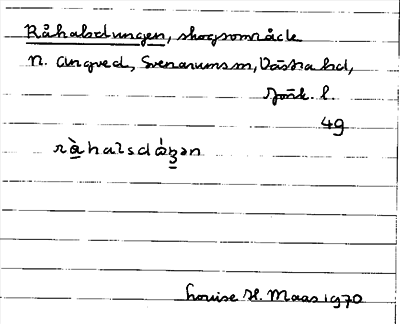 Råhalsdungen, skogsområde
n. Angved, Svenarums sn, Västra hd,
Jönk. l.
49
Louise H. Maas 1970